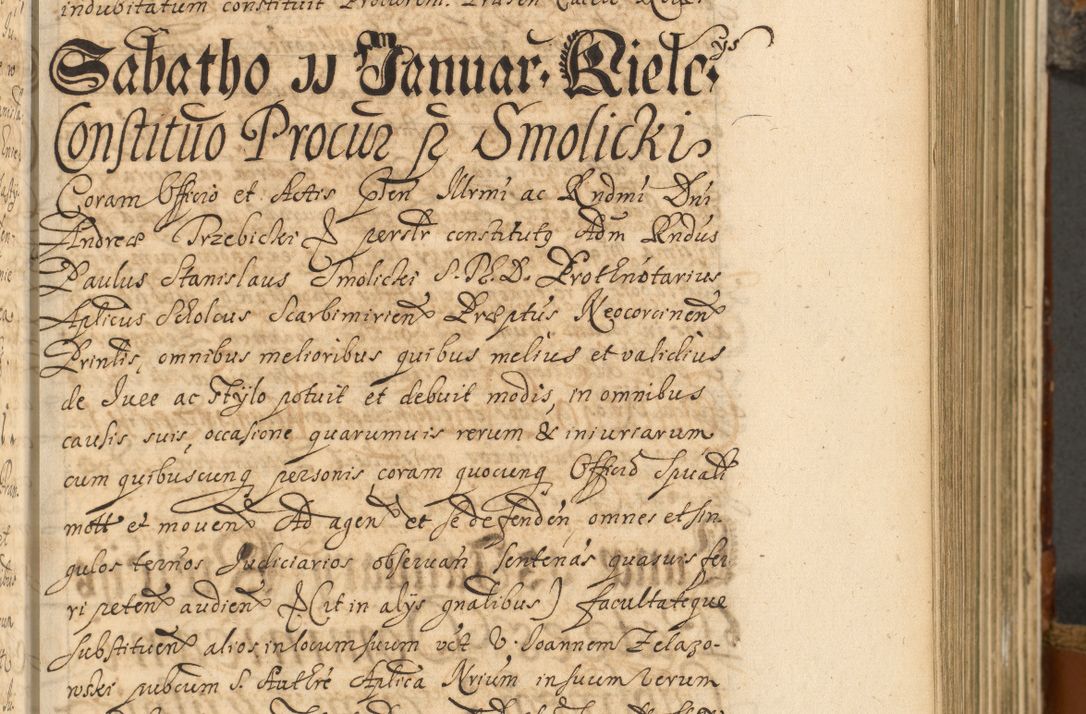 indubitatum constituit
Sabatho 11 Januar. Kielc.ys
Constituo Procur p Smolicki
Coram Officio et Actis pten Illrmi ac Rndmi Dni
Andreæ Trzebicki & perstr constitutq Adm Rndus
Paulus Stanislaus Smolicki S. Th. D. Prothnotarius
Aplicus Scholcus Scarbimirien Præptus Neocorcinen
Printis, omnibus melioribus quibus melius et validius
de Jure ac Stylo potuit et debuit modis, in omnibus
causis suis, occasione quarumuis rerum & iniuriarum
cum quibuscunq personis coram quocunq Officio Spuali
mott et mouen Ad agen et se defenden, omnes et sin
gulos ternos Judiciarios obseruan sentenas quasuis fer
ri peten audien & (ut in alys gnalibus) facultateque
substituen alios in locum suum vet V. Joannem Zelazo-
wski pubcum S. Authre Aplica Nrium in suum verum